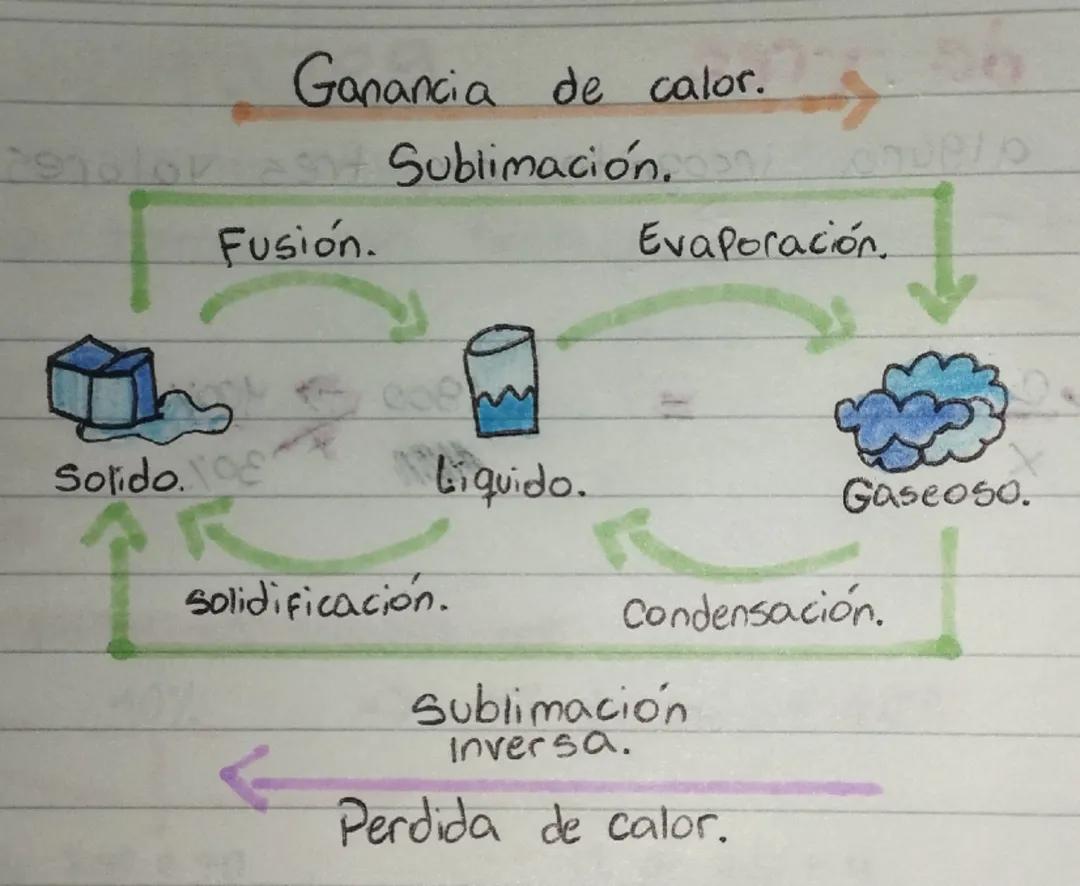 Ganancia de calor.
Sublimación.
Fusión.
Evaporación.
Solido.
Liquido.
Gaseoso.
Solidificación.
Condensación.
Sublimación
inversa.
Perdida de calor.